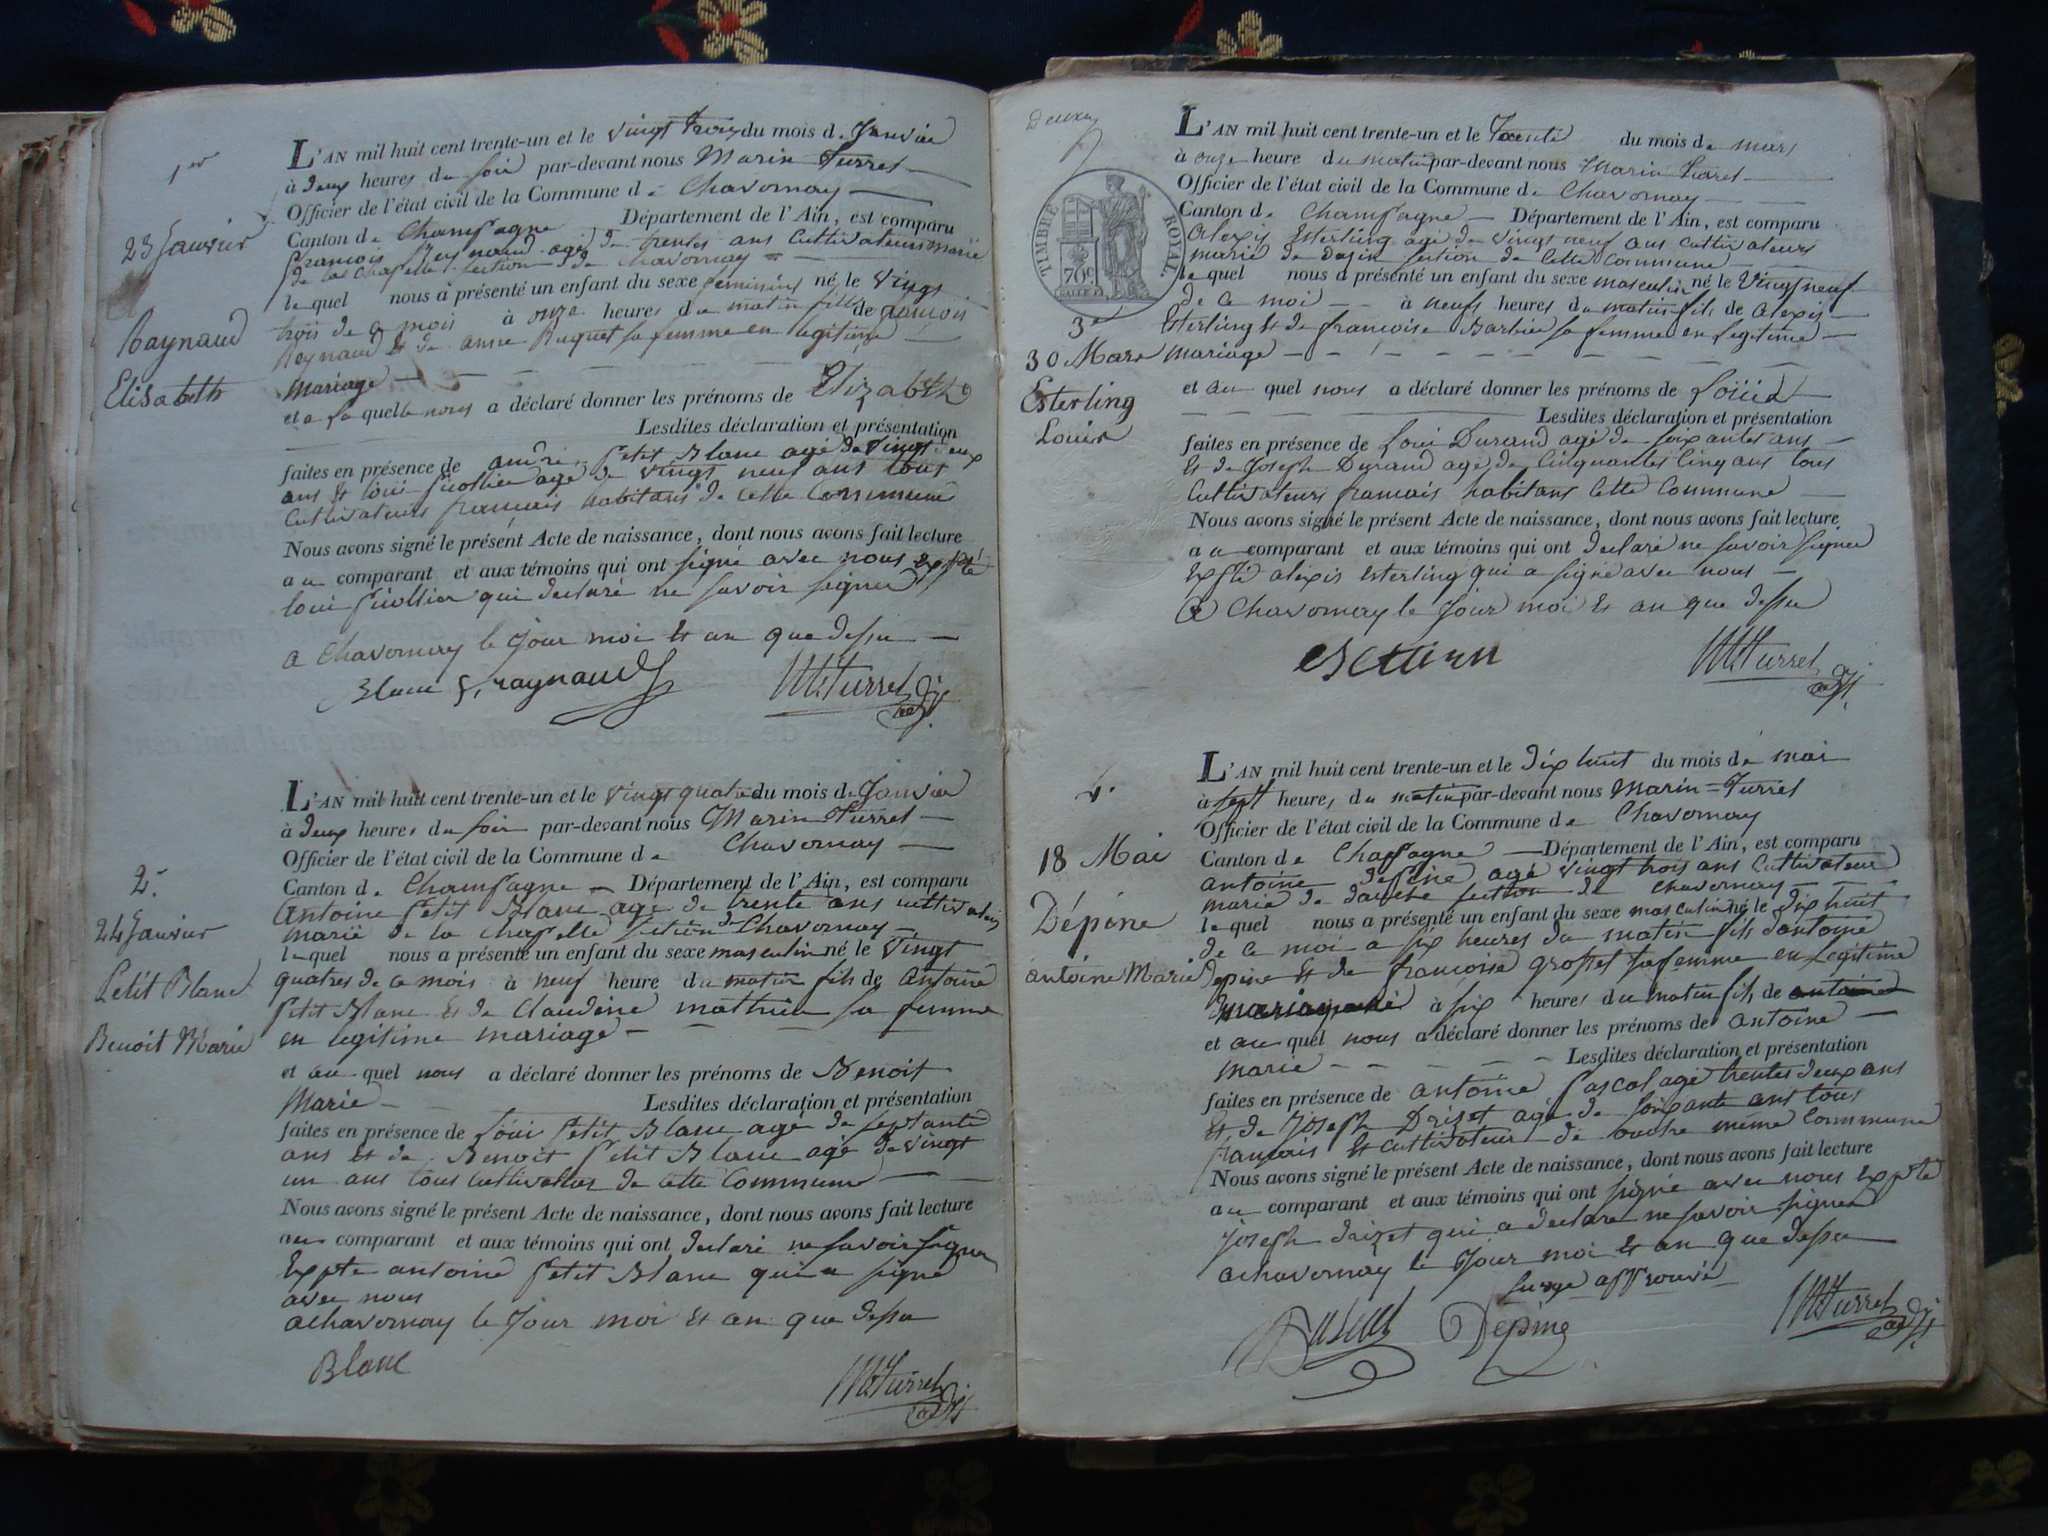 1er
23 Janvier
Raynaud
Elisabeth
L'AN mil huit cent trente-un et le vingt trois du mois de Janvier
à deux heures du soir par-devant nous Marin Turrel
Officier de l'état civil de la Commune de Chavornay
Canton de Champagne Département de l'Ain, est comparu
françois Reynaud agé de trentes ans Cultivateurs marié
de la Chapelle section de Chavornay
le quel nous a présenté un enfant du sexe feminins né le vingt
trois de ce mois à onze heures du matin fille de francois
Reynaud et de anne Ruguet sa femme en legitime
mariage
et a la quelle nous a déclaré donner les prénoms de Elizabeth
Lesdites déclaration et présentation
faites en présence de andré petit Blanc agé de vingt deux
ans et loui agé de vingt neuf ans tous
Cultivateurs francais habitans de cette Commune
Nous avons signé le présent Acte de naissance, dont nous avons fait lecture
au comparant et aux témoins qui ont signé avec nous expté
loui qui declaré ne savoir signer
a Chavornay le Jour moi et an que dessu
Blanc f. raynaud M. Turrel adj.
2e
24 Janvier
Petit Blanc
Benoit Marie
L'AN mil huit cent trente-un et le vingt quatre du mois de Janvier
à deux heures du soir par-devant nous Marin Turrel
Officier de l'état civil de la Commune de Chavornay
Canton de Champagne Département de l'Ain, est comparu
Antoine petit Blanc agé de trente ans cultivateur
marié de la Chapelle section de Chavornay
le quel nous a présenté un enfant du sexe masculin né le vingt
quatres de ce mois à neuf heure du matin fils de Antoine
petit Blanc et de Claudine mathieu sa femme
en legitime mariage
et au quel nous a déclaré donner les prénoms de Benoit
Marie Lesdites déclaration et présentation
faites en présence de loui petit Blanc agé de septante
ans et de Benoit petit Blanc agé de vingt
un ans tous cultivateur de cette Commune
Nous avons signé le présent Acte de naissance, dont nous avons fait lecture
au comparant et aux témoins qui ont declaré ne savoir signer
Expte antoine petit Blanc qui a signé
avec nous
a chavornay le Jour moi et an que dessu
Blanc M. Turrel adj.
Deux
TIMBRE ROYAL
70c
3e
30 Mars
Esterling
Louis
L'AN mil huit cent trente-un et le Trente du mois de mars
à onze heure du matin par-devant nous Marin Turrel
Officier de l'état civil de la Commune de Chavornay
Canton de Champagne Département de l'Ain, est comparu
Alexis Esterling agé de vingt neuf ans cultivateurs
marié de Dazin section de cette Commune
le quel nous a présenté un enfant du sexe masculin né le vingt neuf
de ce moi à neufs heures du matin fils de alexis
Esterling et de françoise Barbier sa femme en legitime
mariage
et au quel nous a déclaré donner les prénoms de Louis
Lesdites déclaration et présentation
faites en présence de Loui Durand agé de soixantes ans
et de Joseph Durand agé de Cinquantes Cinq ans tous
Cultivateurs francais habitans cette Commune
Nous avons signé le présent Acte de naissance, dont nous avons fait lecture
au comparant et aux témoins qui ont declaré ne savoir signer
Expté alexis Esterling qui a signé avec nous
a Chavornay le Jour moi et an que dessu
M. Turrel adj.
4.
18 Mai
Dépine
antoine Marie
L'AN mil huit cent trente-un et le dix huit du mois de mai
à sept heures du matin par-devant nous Marin Turrel
Officier de l'état civil de la Commune de Chavornay
Canton de Chapagne Département de l'Ain, est comparu
antoine depine agé vingt trois ans Cultivateur
marié de section de Chavornay
le quel nous a présenté un enfant du sexe masculin né le dix huit
de ce moi a six heures du matin fils d'antoine
Depine et de francoise grosset sa femme en legitime
mariage à six heures du matin fils de antoine
et au quel nous a déclaré donner les prénoms de antoine
marie Lesdites déclaration et présentation
faites en présence de antoine pascal agé trentes deux ans
et de Joseph Drizet agé de soixante ans tous
français et cultivateur de même Commune
Nous avons signé le présent Acte de naissance, dont nous avons fait lecture
au comparant et aux témoins qui ont signé avec nous expté
Joseph drizet qui a declaré ne savoir signer
a chavornay le Jour moi et an que dessu
approuvé
Pascal Dépine M. Turrel adj.